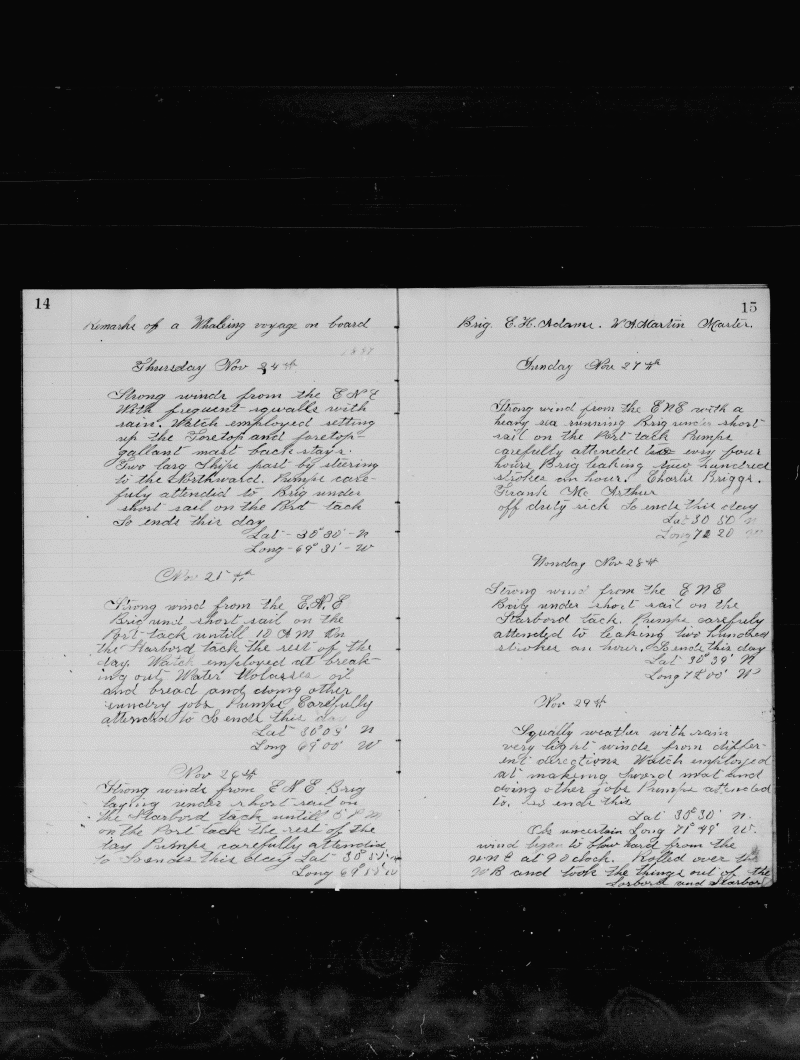 14
Remarks of a Whaleing voyage on board
Thursday Nov 24th
Strong winds from the E N E
With frequent squalls with
rain. Watch employed setting
up the Foretop and foretop-
gallant mast back stays.
Two larg Ships past by steering
to the Northward. Pumps care-
fuly attended to Brig under
short sail on the Port tack
So ends this day
Lat - 30° 30' - N
Long - 69° 31' - W
Nov 25th
Strong wind from the E.N.E
Brig und short sail on the
Port tack untill 10 A M On
the Starbord tack the rest of the
day. Watch employed at break-
ing out Water Molasses oil
and bread and doing other
sundry jobs Pumps Carefully
attended to So ends this day
Lat 30° 09' N
Long 69° 00' W
Nov 26th
Strong winds from E N E Brig
laying under short sail on
the Starbord tack untill P M
on the Port tack the rest of the
day Pumps carefully attended
to So ends this day Lat 30°
Long 69°
15
Brig. E. H. Adams. W A Martin Master.
Sunday Nov 27th
Strong wind from the ENE with a
heavy sea running Brig under short
sail on the Port tack Pumps
carefully attended to evry four
hours Brig leaking two hundred
strokes an hour. Charlie Briggs.
Frank Mc Arthur
off duty sick So ends this day
Lat 30 50 N
Long 72 20 W
Monday Nov 28th
Strong wind from the E N E
Brig under short sail on the
Starbord tack. Pumps carefuly
attended to leaking two hundred
strokes an hour. So ends this day
Lat 30° 39' N
Long 71° 00' W
Nov 29th
Squally weather with rain
very light winds from differ-
ent directions Watch employed
at making sword mat and
doing other jobs Pumps attended
to. So ends this
Lat 30° 30' N.
Obs uncertain Long 71° 49' W.
wind began to blow hard from the
NNE at 9 Oclock. Rolled over the
WB and took the things out of the
Larbord and Starbord